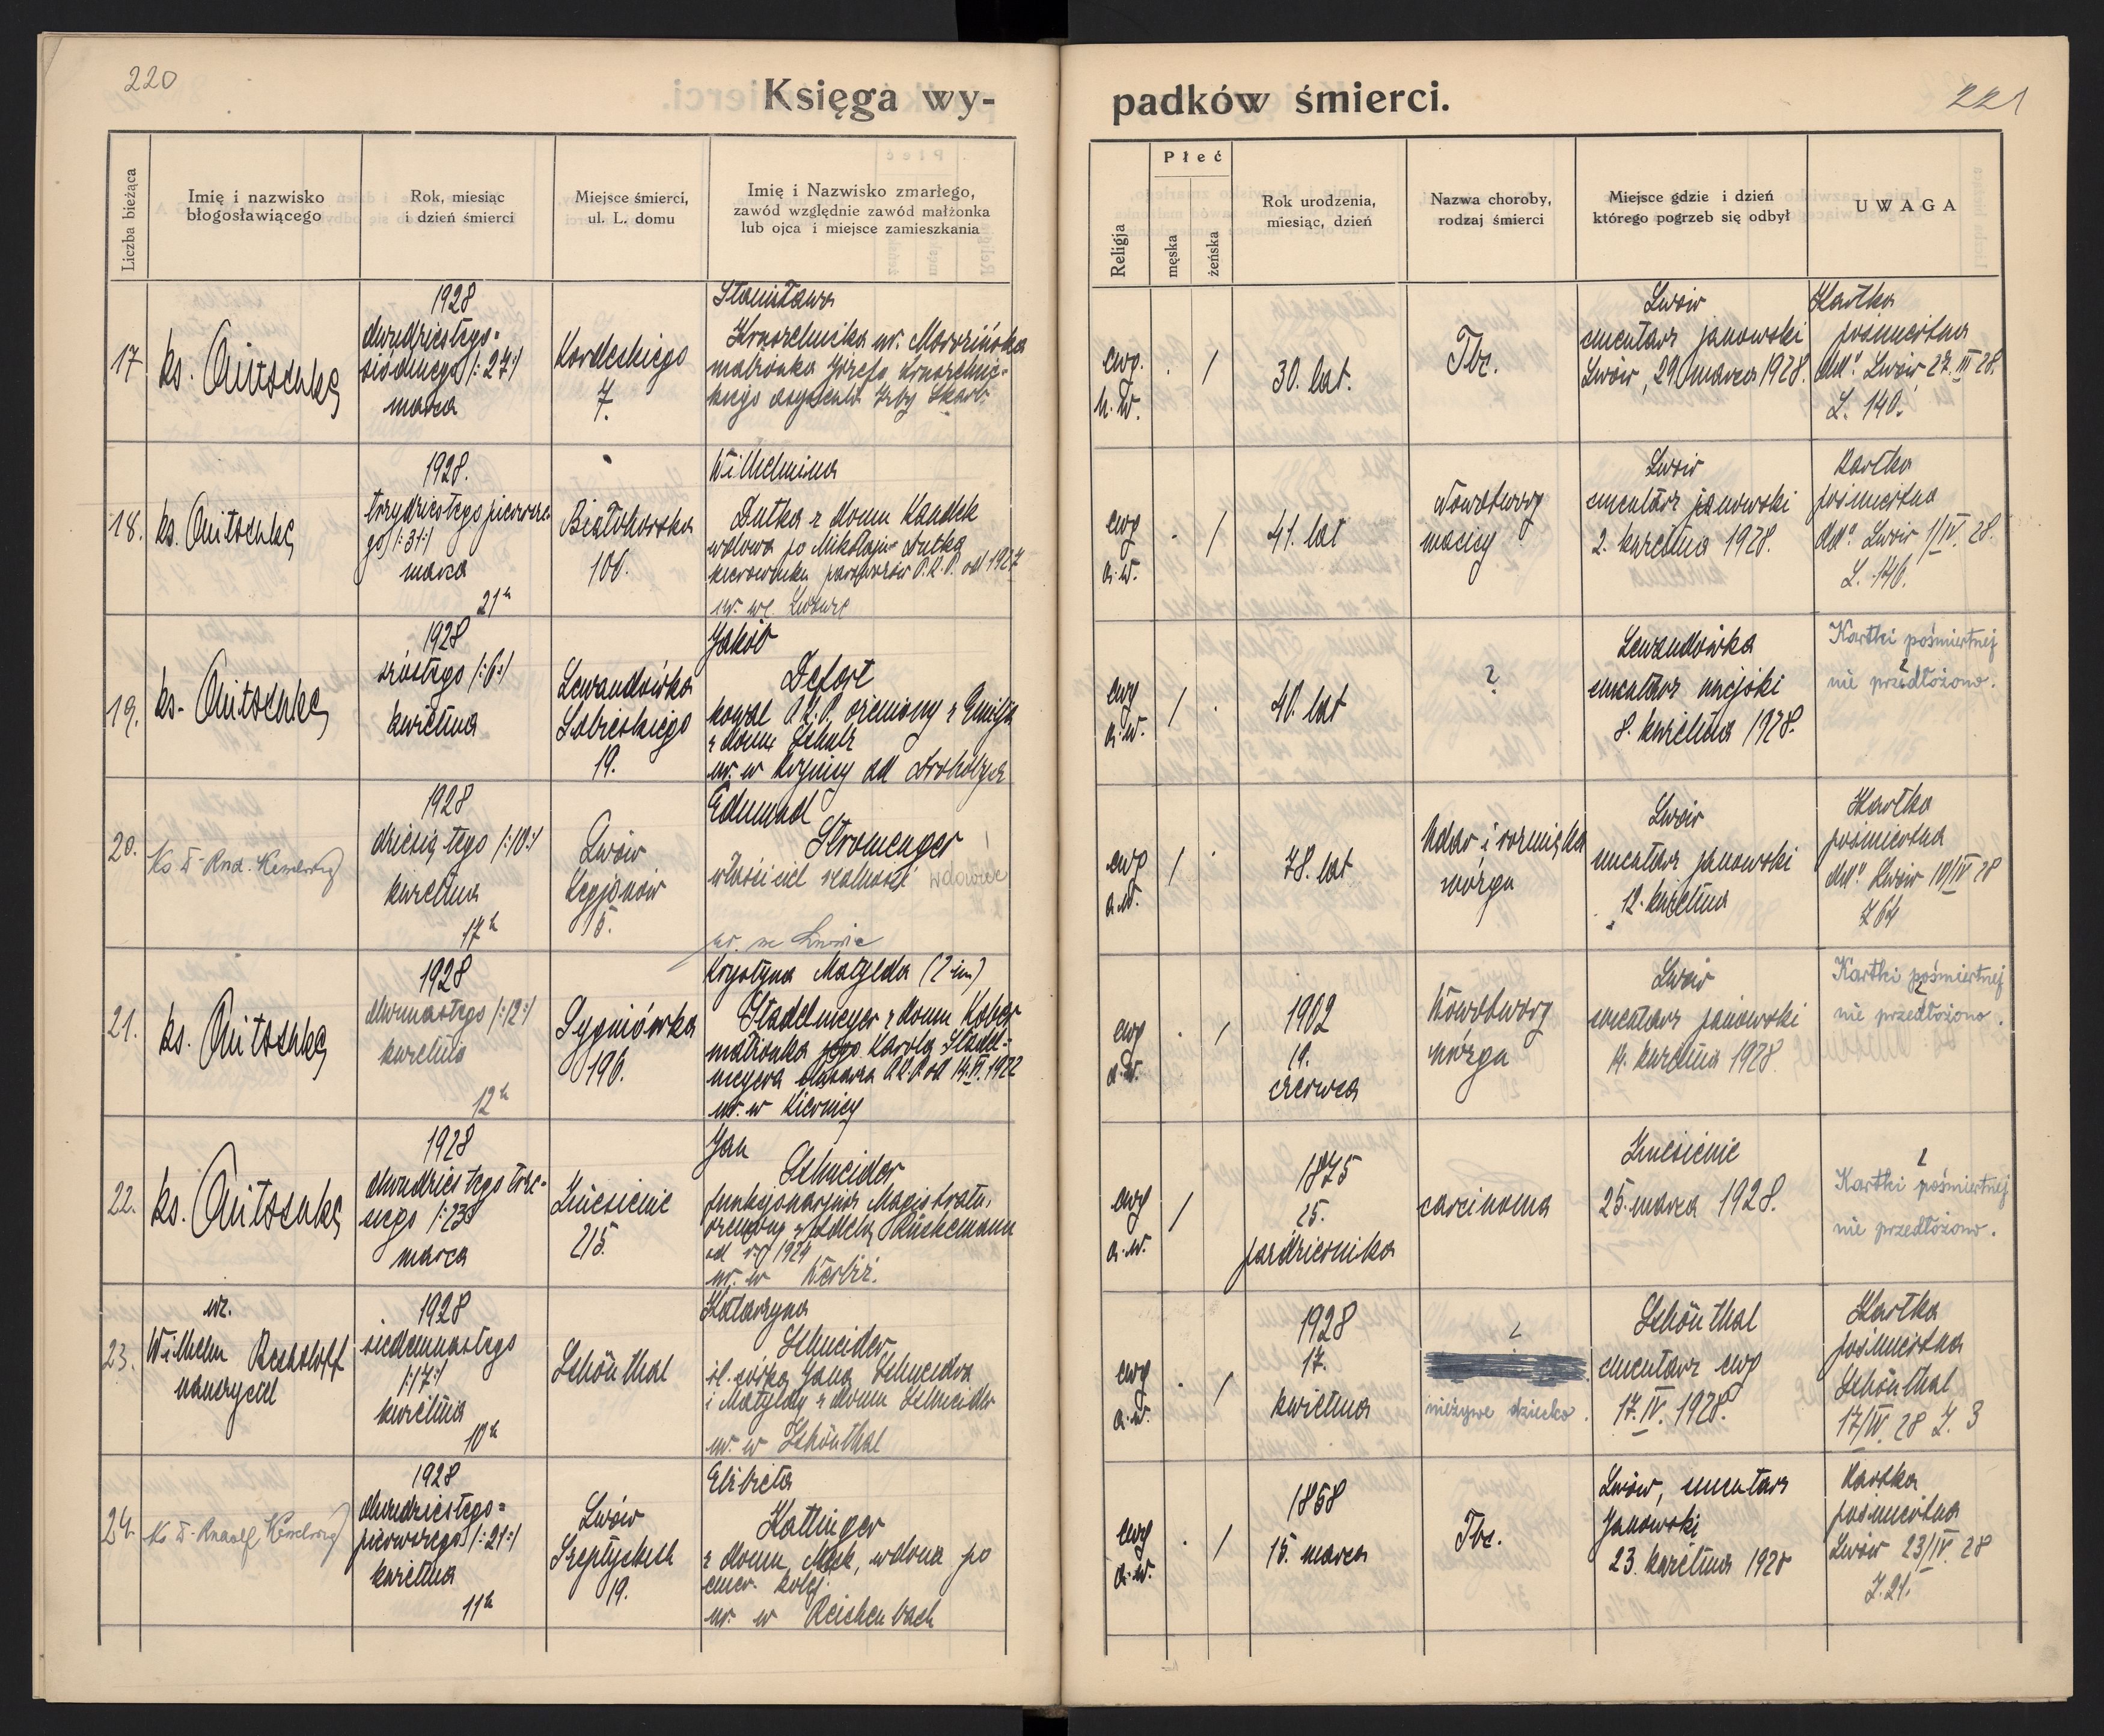 220
Księga wy-
padków śmierci.
221
Liczba bieżąca
Imię i nazwisko
błogosławiącego
Rok, miesiąc
i dzień śmierci
Miejsce śmierci,
ul. L. domu
Imię i Nazwisko zmarłego,
zawód względnie zawód małżonka
lub ojca i miejsce zamieszkania
Religja
Płeć
męska
żeńska
Rok urodzenia,
miesiąc, dzień
Nazwa choroby,
rodzaj śmierci
Miejsce gdzie i dzień
którego pogrzeb się odbył
UWAGA
17
ks.
1928
dwudziestego-
siódmego /:27:/
marca
Kordeckiego
7.
Stanisława
małżonka Józefa
ewg.
h. w.
30. lat.
Tbc.
Lwów
cmentarz janowski
Lwów, 29 marca 1928.
Kartka
pośmiertna
ddo Lwów 27.III 28.
L. 140.
18.
ks.
1928.
trzydziestego pierwsze-
go /:31:/
marca
21h
Białohorska
100.
Wilhelmina
Dutka z domu
wdowa po Mikołaju Dutka
we Lwowie
ewg
a. w.
41. lat
Nowotwory
macicy
Lwów
cmentarz janowski
2. kwietnia 1928.
Kartka
pośmiertna
ddo Lwów 1/IV. 28.
L. 146.
19.
ks.
1928
szóstego /:6:/
kwietnia
Lewandówka
Sobieskiego
19.
Jakób
Defort
kowal P.K.P. ożeniony z Emilją
z domu Schulz
ur. w
ewg
a. w.
40. lat
?
Lewandówka
cmentarz miejski
8. kwietnia 1928.
Kartki pośmiertnej
nie przedłożono.
20.
1928
dziesiątego /:10:/
kwietnia
17h
Lwów
Legjonów
5.
Edmund
Stromenger
właściciel realności wdowiec
ur. we Lwowie
ewg
a. w.
78. lat
Udar i rozmięka
mózgu
Lwów
cmentarz janowski
12. kwietnia
Kartka
pośmiertna
ddo Lwów 10/IV 28
L 64
21.
ks.
1928
dwunastego /:12:/
kwietnia
12h
Sygniówka
196.
Krystyna Matylda (2 im)
Stadelmeyer z domu Kober
małżonka Karola Stadel-
meyera P.K.P. od 14.V.1922
ur. w Kiernicy
ewg
a. w.
1902
19.
czerwca
Nowotwory
mózgu
Lwów
cmentarz janowski
14. kwietnia 1928
Kartki pośmiertnej
nie przedłożono.
22.
ks.
1928
dwudziestego trze-
ciego /:23
marca
Zniesienie
215.
Jan
Schneider
funkcjonarjusz Magistratu,
od 1924
ur. w
ewg
a. w.
1875
25.
października
carcinoma
Zniesienie
25. marca 1928.
Kartki pośmiertnej
nie przedłożono.
23.
Wilhelm
nauczyciel
1928
siedemnastego
/:17:/
kwietnia
10h
Schönthal
Katarzyna
Schneider
śl. córka Jana Schneidra
i Matyldy z domu Schneider
ur. w Schönthal
ewg
a. w.
1928
17.
kwietnia
nieżywe dziecko.
Schönthal
cmentarz ewg
17. IV. 1928.
Kartka
pośmiertna
Schönthal
17/IV 28 L. 3
24.
1928
dwudziestego-
pierwszego /:21:/
kwietnia
11h
Lwów
Szeptyckich
19.
Elżbieta
Kattinger
z domu Mek, wdowa po
emer. kolej.
ur. w Reichenbach
ewg
a. w.
1858
15. marca
Tbc.
Lwów, cmentarz
Janowski
23. kwietnia 1928
Kartka
pośmiertna
Lwów 23/IV. 28
L. 21.